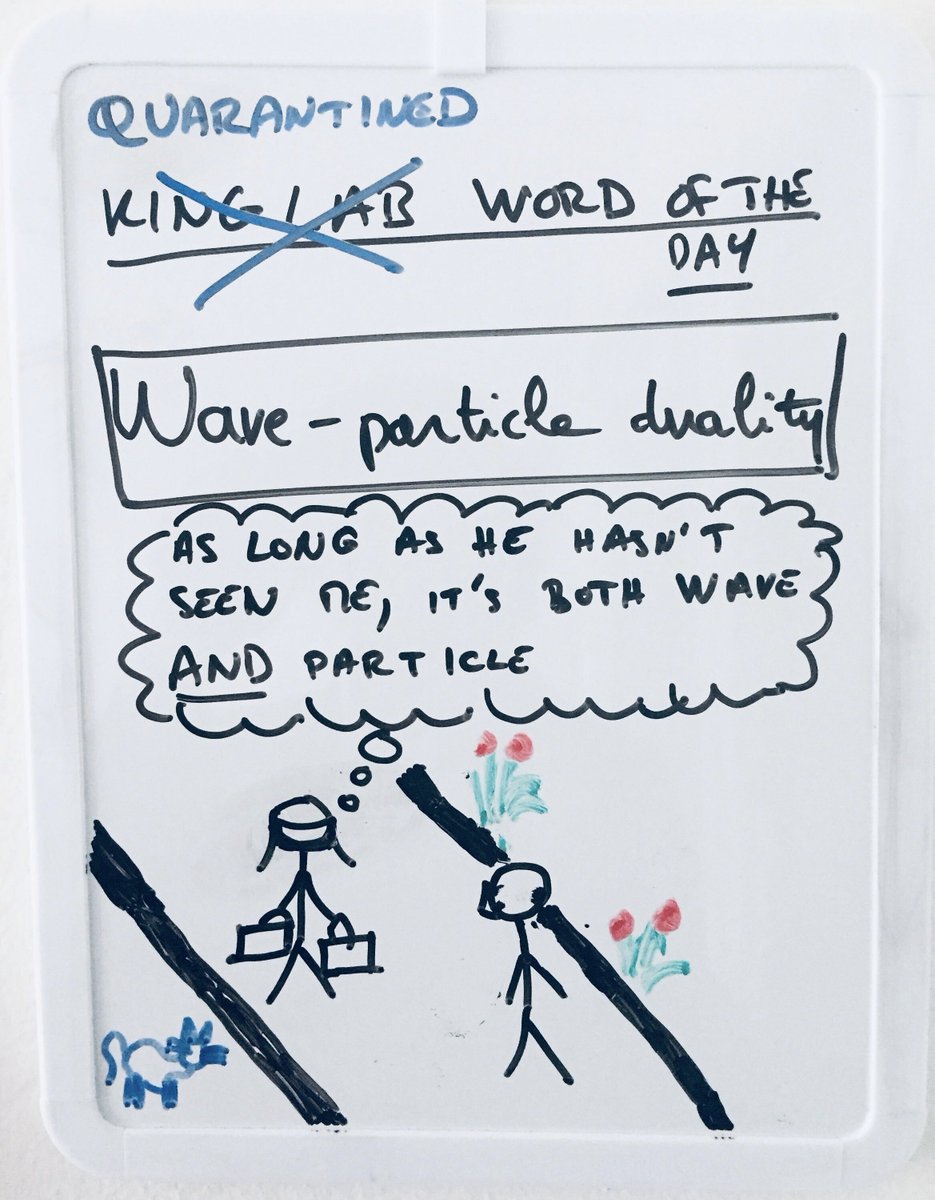 QUARANTINED
KING LAB WORD OF THE
DAY
Wave-particle duality
AS LONG AS HE HASN'T
SEEN ME, IT'S BOTH WAVE
AND PARTICLE